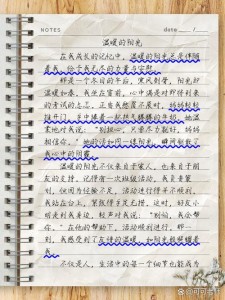 NOTES
date
温暖的阳光
在我成长的记忆中，温暖的阳光总是伴随
着我，给予我无尽的力量与安慰。
那是一个冬日的午后，寒风刺骨，阳光却
温暖如春。我坐在窗前，心中满是对即将到来
的考试的忐忑。正当我愁眉不展时，妈妈轻轻
推开门，手中端着一杯热气腾腾的牛奶。她温
柔地对我说：“别担心，只要尽力就好，妈妈
相信你。”她的话如同一缕阳光，瞬间驱散了
我心中的阴霾。
温暖的阳光不仅来自于家人，也来自于朋
友的支持。记得有一次班级活动，我负责策
划，但因为经验不足，活动进行得并不顺利。
我站在台上，紧张得手足无措。这时，好友小
明走到我身边，轻声对我说：“别怕，我会帮
你。”在他的帮助下，活动顺利进行，那一
刻，我感受到了友情的温暖，如阳光般照耀着
不仅是人，生活中的每一个细节也能成为